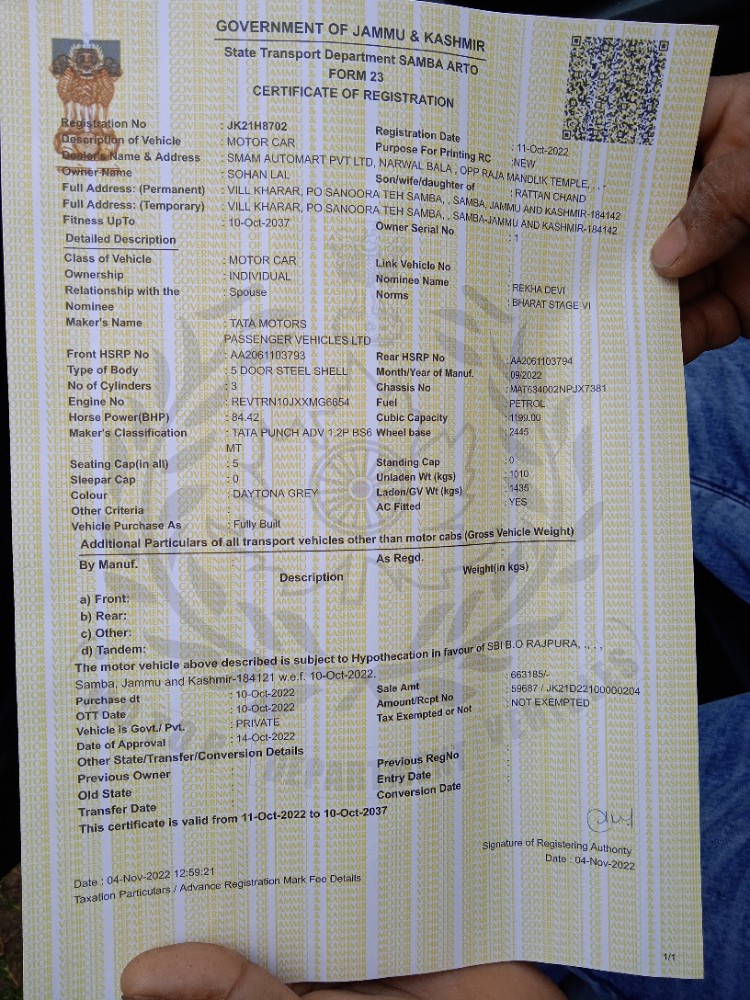 GOVERNMENT OF JAMMU & KASHMIR
State Transport Department SAMBA ARTO
FORM 23
CERTIFICATE OF REGISTRATION
Registration No : JK21H8702 Registration Date : 11-Oct-2022
Description of Vehicle : MOTOR CAR Purpose For Printing RC :NEW
Dealer's Name & Address : SMAM AUTOMART PVT LTD, NARWAL BALA , OPP RAJA MANDLIK TEMPLE, , -
Owner Name : SOHAN LAL Son/wife/daughter of : RATTAN CHAND
Full Address: (Permanent) : VILL KHARAR, PO SANOORA TEH SAMBA, , SAMBA, JAMMU AND KASHMIR-184142
Full Address: (Temporary) : VILL KHARAR, PO SANOORA TEH SAMBA, , SAMBA-JAMMU AND KASHMIR-184142
Fitness UpTo : 10-Oct-2037 Owner Serial No : 1
Detailed Description
Class of Vehicle : MOTOR CAR Link Vehicle No :
Ownership : INDIVIDUAL Nominee Name : REKHA DEVI
Relationship with the : Spouse Norms : BHARAT STAGE VI
Nominee
Maker's Name : TATA MOTORS
PASSENGER VEHICLES LTD
Front HSRP No : AA2061103793 Rear HSRP No : AA2061103794
Type of Body : 5 DOOR STEEL SHELL Month/Year of Manuf. : 09/2022
No of Cylinders : 3 Chassis No : MAT634002NPJX7381
Engine No : REVTRN10JXXMG6654 Fuel : PETROL
Horse Power(BHP) : 84.42 Cubic Capacity : 1199.00
Maker's Classification : TATA PUNCH ADV 1.2P BS6 Wheel base : 2445
MT
Seating Cap(in all) : 5 Standing Cap : 0
Sleepar Cap : 0 Unladen Wt (kgs) : 1010
Colour : DAYTONA GREY Laden/GV Wt (kgs) : 1435
Other Criteria : AC Fitted : YES
Vehicle Purchase As : Fully Built
Additional Particulars of all transport vehicles other than motor cabs (Gross Vehicle Weight)
By Manuf. : As Regd. :
Description Weight(in kgs)
a) Front:
b) Rear:
c) Other:
d) Tandem:
The motor vehicle above described is subject to Hypothecation in favour of SBI B.O RAJPURA, ., , .
Samba, Jammu and Kashmir-184121 w.e.f. 10-Oct-2022.
Purchase dt : 10-Oct-2022 Sale Amt : 663185/-
OTT Date : 10-Oct-2022 Amount/Rcpt No : 59687 / JK21D22100000204
Vehicle is Govt./ Pvt. : PRIVATE Tax Exempted or Not : NOT EXEMPTED
Date of Approval : 14-Oct-2022
Other State/Transfer/Conversion Details
Previous Owner : Previous RegNo :
Old State : Entry Date :
Transfer Date : Conversion Date :
This certificate is valid from 11-Oct-2022 to 10-Oct-2037
Signature of Registering Authority
Date : 04-Nov-2022
Date : 04-Nov-2022 12:59:21
Taxation Particulars / Advance Registration Mark Fee Details
1/1